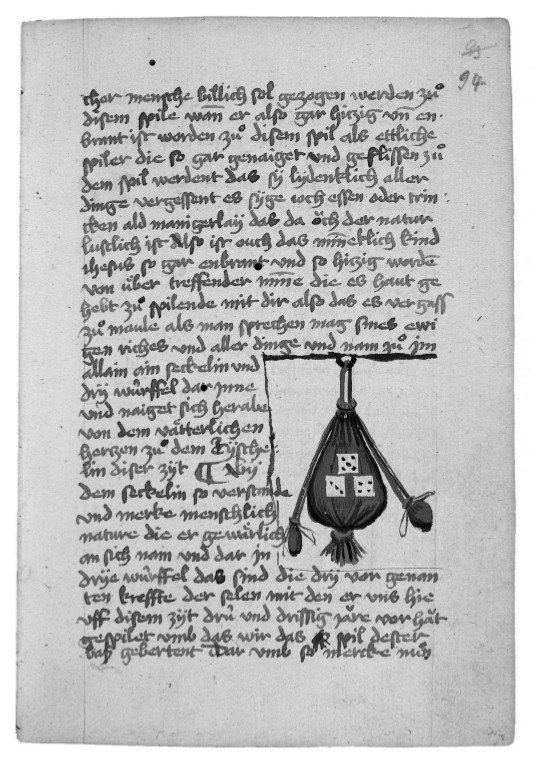 94
cher mensche billich sol gezogen werden zuͦ
disem spile wan̄ er also gar hitzig vn̄ en
brant ist worden zuͦ disem spil als ettliche
spiler die so gar genaiget vnd geflissen zuͦ
dem spil werdent das sÿ lÿdentklich aller
dinge vergessent es sÿge ioch essen oder trin
cken ald manigerlaÿ das da öch der natur
lustlich ist Also ist ouch das min̄eklich kind
ihesus so gar enbrant vnd so hitzig wordē
von über treffender min̄e die es haut ge
hebt zuͦ spilende mit dir also das es vergass
zuͦ maule als man sprechen mag sines ewi
gen riches vnd aller dinge vnd nam zuͦ im
allain ain seckelin vnd
drÿ würffel dar inne
vnd naiget sich herabe
von dem vätterlichen
hertzen zuͦ dem Tÿsche
lin diser zÿt ¶ Bÿ
dem seckelin so verstande
vnd merke menschlich
nature die er gewärlich
an sich nam vnd dar jn
drÿe würffel das sind die drÿ vor genan
ten kreffte der selen mit den er vns hie
vff disem zÿt drü vnd drissig jare vor hät
gespilet vmb das wir das spil dester
bas gelertent Dar vmb so mercke nun